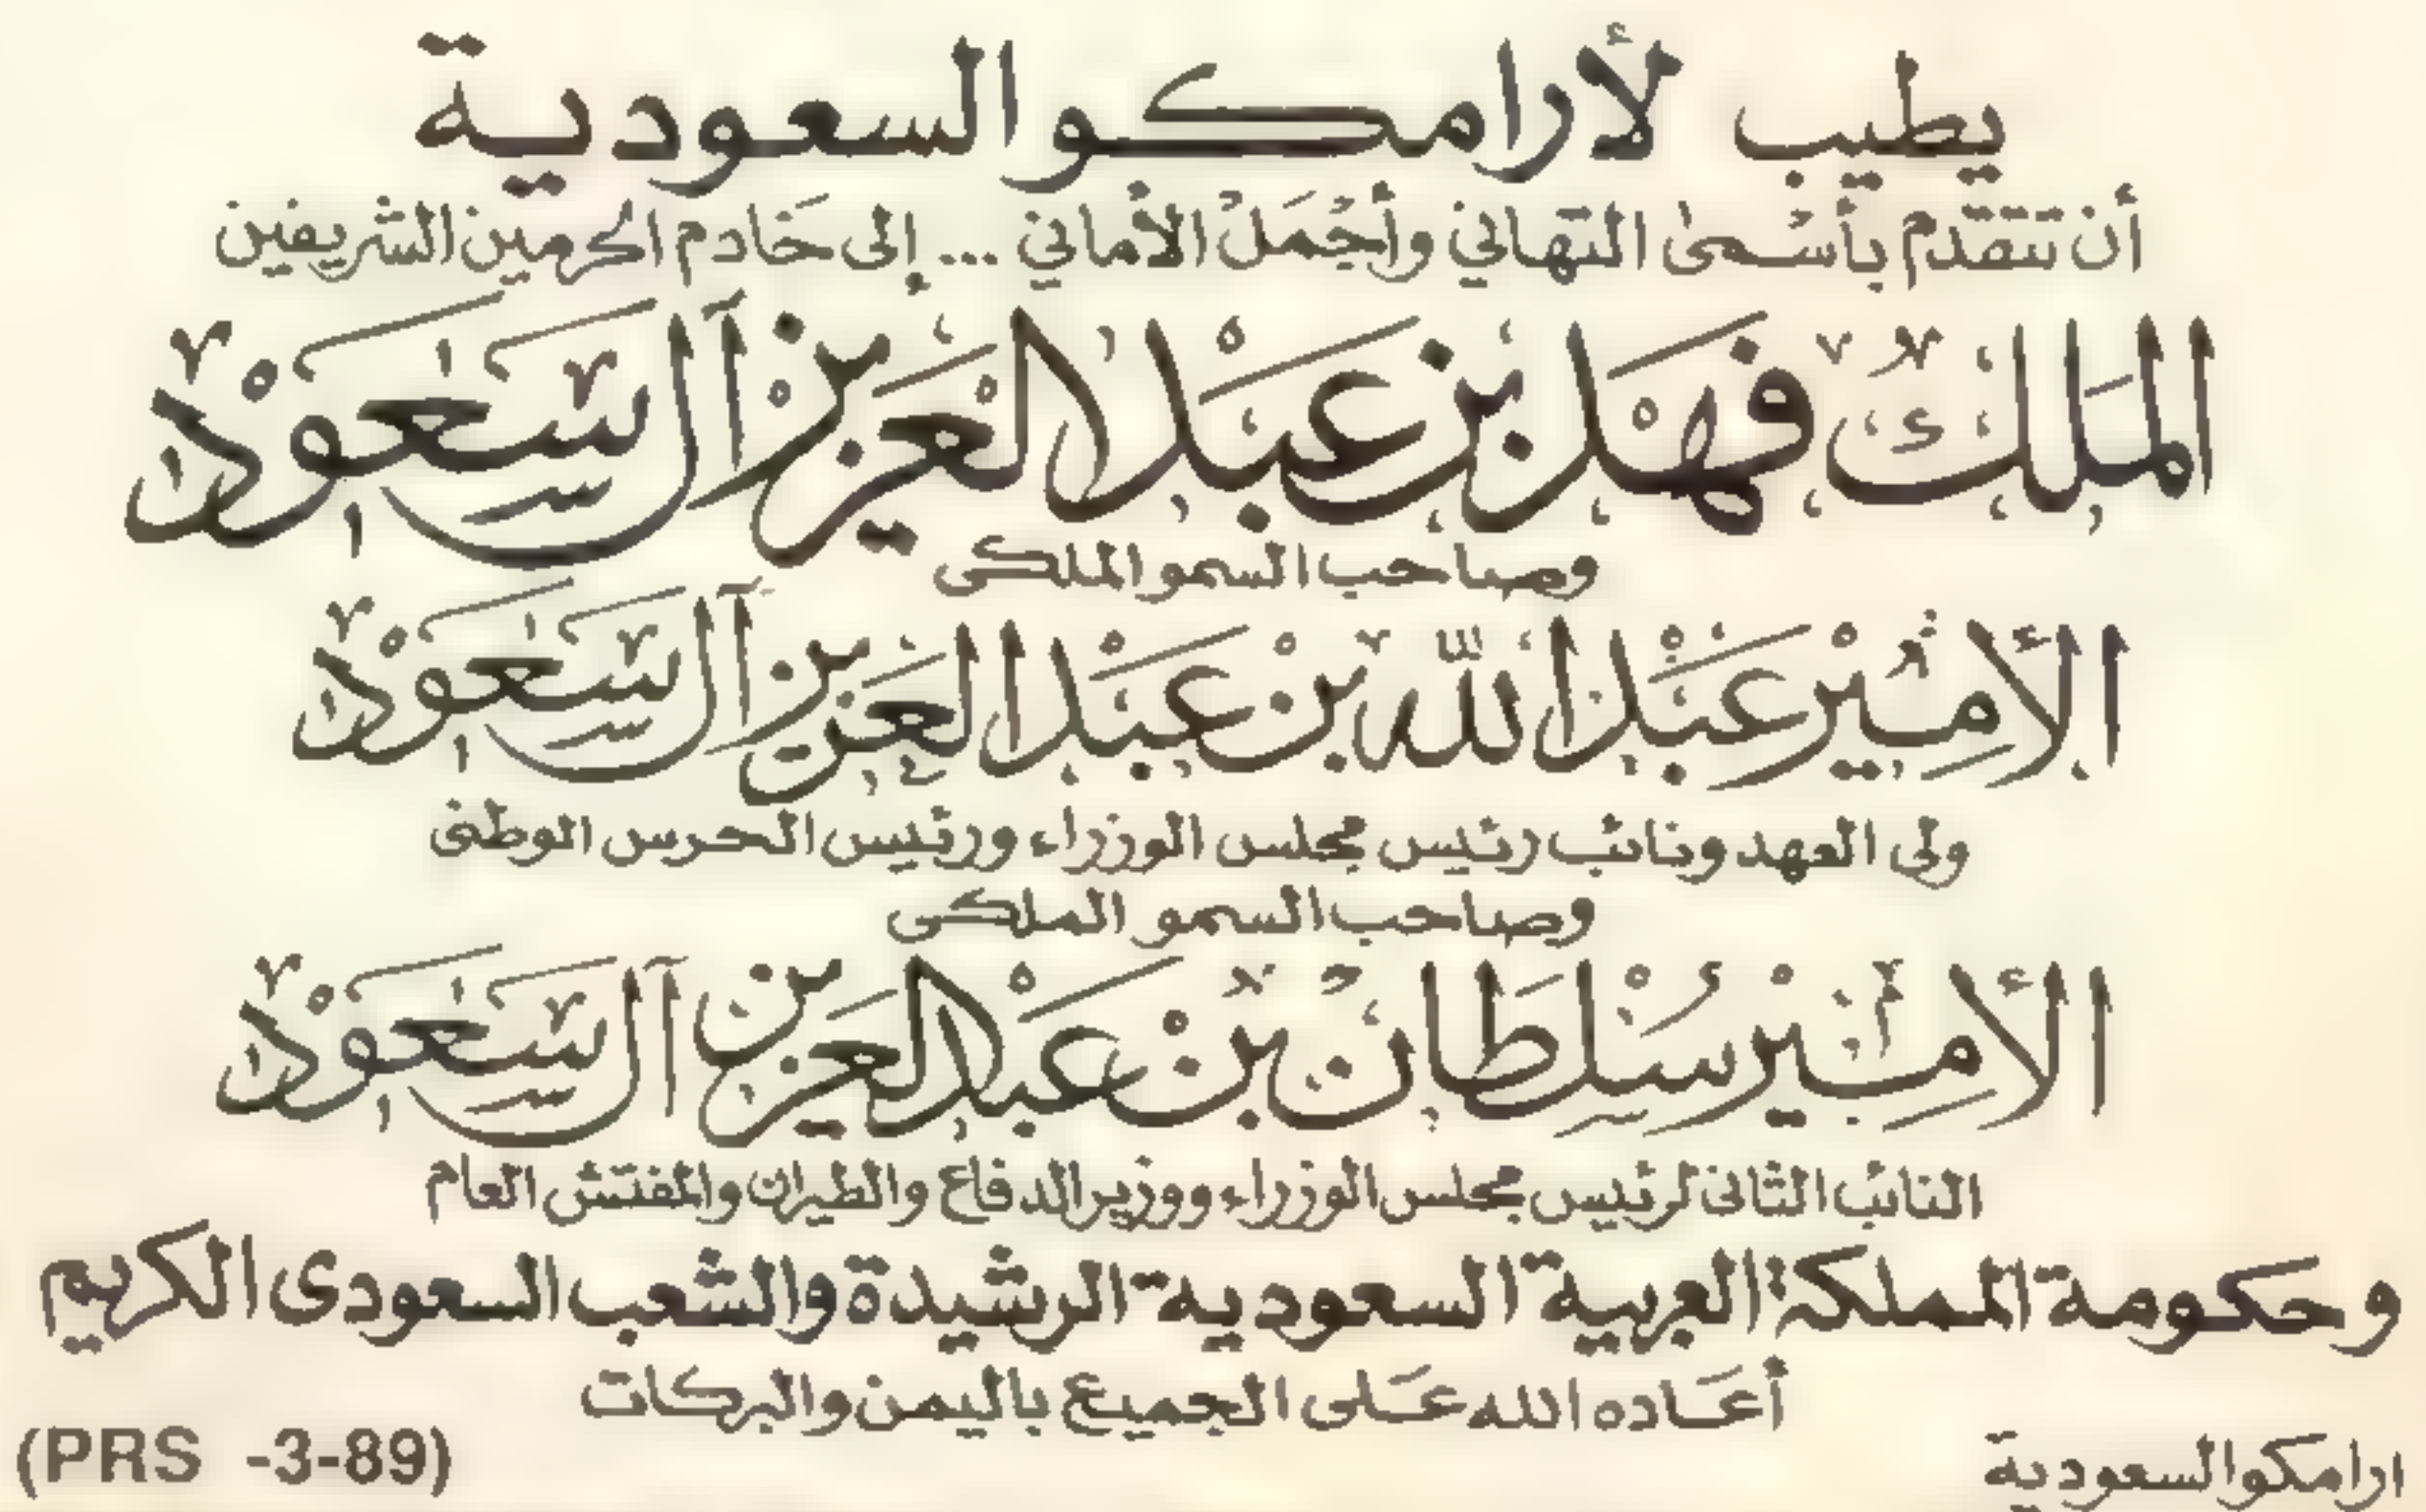 يطيب لأرامكو السعودية
أن تتقدم بأسْمىٰ التهاني وأجْمَلْ الأماني ... إلى خَادم الحرمين الشريفين
الملك فهد بن عبد العزيز آل سعود
وصاحب السمو الملكى
الأمير عبد الله بن عبد العزيز آل سعود
ولى العهد ونائب رئيس مجلس الوزراء ورئيس الحرس الوطنى
وصاحب السمو الملكى
الأمير سلطان بن عبد العزيز آل سعود
النائب الثانى لرئيس مجلس الوزراء ووزير الدفاع والطيران والمفتش العام
وحكومة المملكة العربية السعودية الرشيدة والشعب السعودى الكريم
أعَاده الله عَلى الجميع باليمن والبركات
ارامكو السعودية
(PRS -3-89)